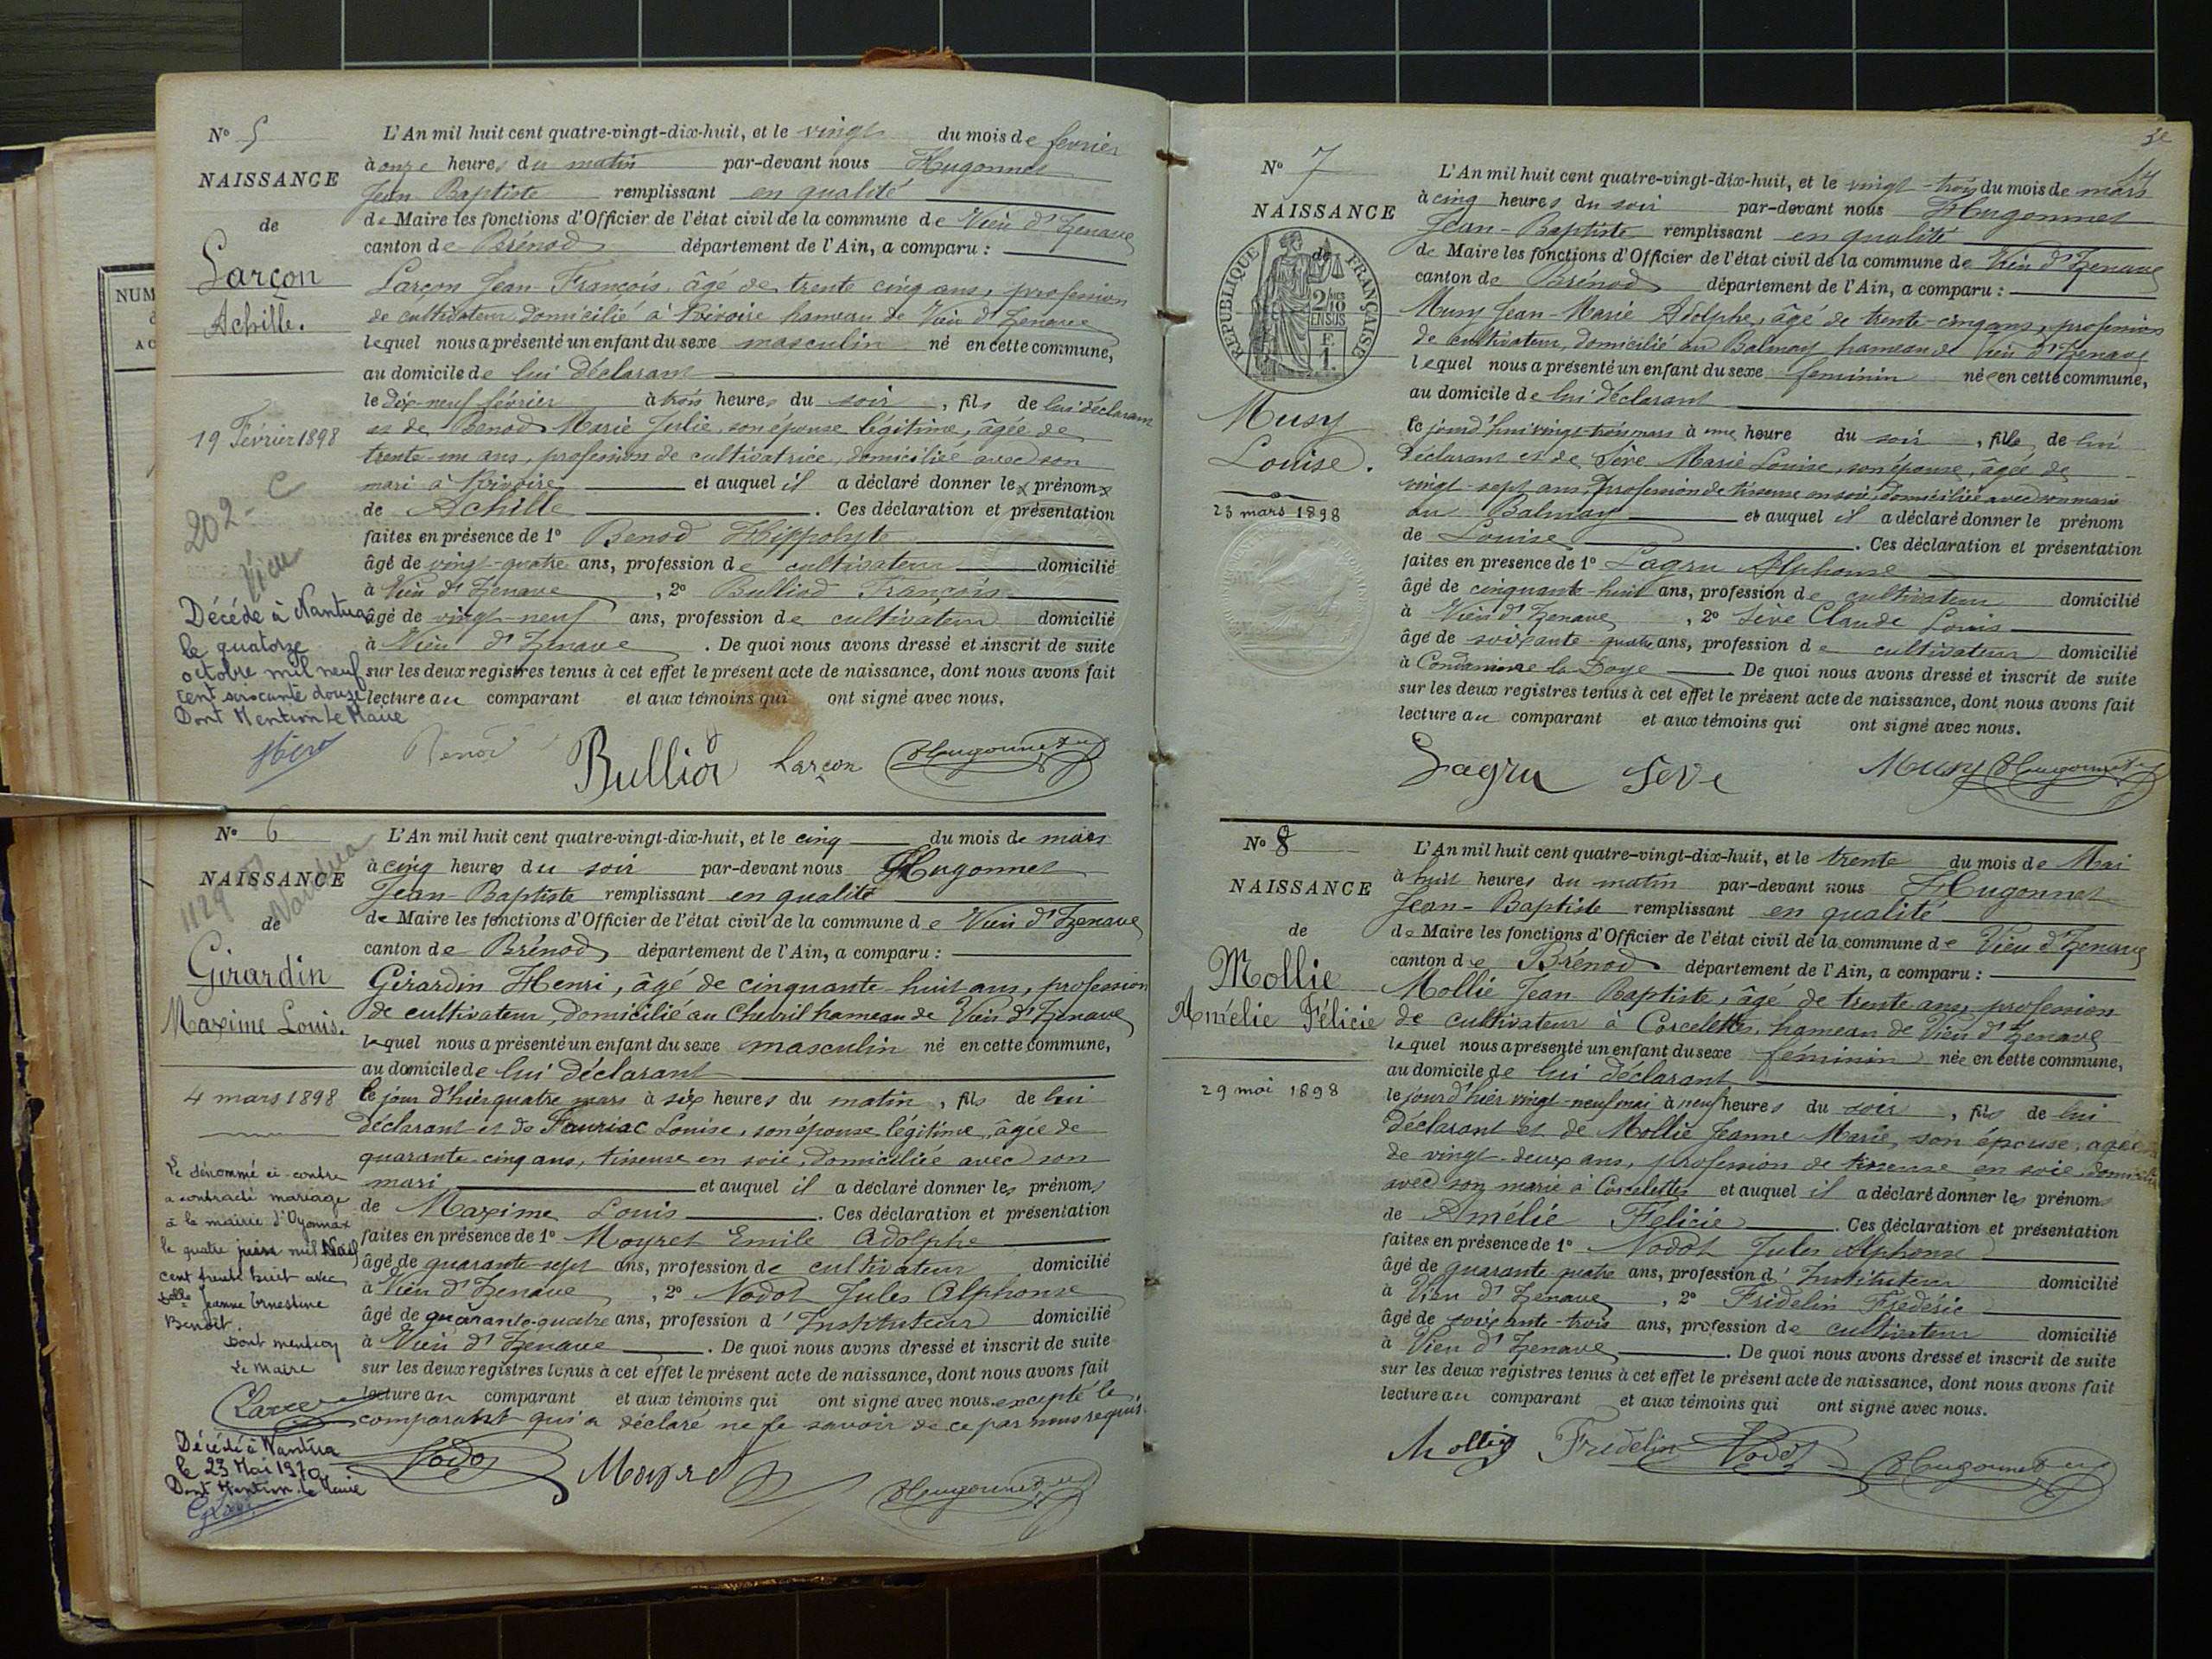 N° 5
NAISSANCE
de
Larçon
Achille.
19 Février 1898
202 - C
Vieu
Décédé à Nantua
le quatorze
octobre mil neuf
cent soixante douze
Dont Mention Le Maire
L'An mil huit cent quatre-vingt-dix-huit, et le vingt du mois de février
à onze heures du matin par-devant nous Hugonnet
Jean Baptiste remplissant en qualité
de Maire les fonctions d'Officier de l'état civil de la commune de Vieu d'Izenave
canton de Brénod département de l'Ain, a comparu :
Larçon Jean François, âgé de trente cinq ans, profession
de cultivateur domicilié à Rivoire hameau de Vieu d'Izenave
lequel nous a présenté un enfant du sexe masculin né en cette commune,
au domicile de lui déclarant
le dix-neuf février à trois heures du soir, fils de lui déclarant
et de Benod Marie Julie, son épouse légitime, âgée de
trente-un ans, profession de cultivatrice, domiciliée avec son
mari à Rivoire et auquel il a déclaré donner le prénom
de Achille. Ces déclaration et présentation
faites en présence de 1° Benod Hippolyte
âgé de vingt-quatre ans, profession de cultivateur domicilié
à Vieu d'Izenave, 2° Bulliod François
âgé de vingt-neuf ans, profession de cultivateur domicilié
à Vieu d'Izenave. De quoi nous avons dressé et inscrit de suite
sur les deux registres tenus à cet effet le présent acte de naissance, dont nous avons fait
lecture au comparant et aux témoins qui ont signé avec nous.
Benod Bulliod Larçon Hugonnet
N° 6
NAISSANCE
1129
Nantua
de
Girardin
Maxime Louis.
4 mars 1898
Le dénommé ci-contre
a contracté mariage
à la mairie d'Oyonnax
le quatre juin mil neuf
cent trente huit avec
Jeanne Ernestine
Benoît.
Dont mention
Le Maire
Décédé à Nantua
le 23 Mai 1970
Dont Mention. Le Maire
L'An mil huit cent quatre-vingt-dix-huit, et le cinq du mois de mars
à cinq heures du soir par-devant nous Hugonnet
Jean-Baptiste remplissant en qualité
de Maire les fonctions d'Officier de l'état civil de la commune de Vieu d'Izenave
canton de Brénod département de l'Ain, a comparu :
Girardin Henri, âgé de cinquante-huit ans, profession
de cultivateur, domicilié au Chevril hameau de Vieu d'Izenave
lequel nous a présenté un enfant du sexe masculin né en cette commune,
au domicile de lui déclarant
le jour d'hier quatre mars à six heures du matin, fils de lui
déclarant et de Fauriac Louise, son épouse légitime, âgée de
quarante-cinq ans, tisseuse en soie, domiciliée avec son
mari et auquel il a déclaré donner les prénoms
de Maxime Louis. Ces déclaration et présentation
faites en présence de 1° Moyret Emile Adolphe
âgé de quarante-sept ans, profession de cultivateur domicilié
à Vieu d'Izenave, 2° Nodot Jules Alphonse
âgé de quarante-quatre ans, profession d'Instituteur domicilié
à Vieu d'Izenave. De quoi nous avons dressé et inscrit de suite
sur les deux registres tenus à cet effet le présent acte de naissance, dont nous avons fait
lecture au comparant et aux témoins qui ont signé avec nous excepté le
comparant qui a déclaré ne le savoir de ce par nous requis.
Nodot Moyret Hugonnet
N° 7
NAISSANCE
de
RÉPUBLIQUE FRANÇAISE
2/10
EN SUS
F.
1.
Musy
Louise.
23 mars 1898
L'An mil huit cent quatre-vingt-dix-huit, et le vingt-trois du mois de mars
à cinq heures du soir par-devant nous Hugonnet
Jean-Baptiste remplissant en qualité
de Maire les fonctions d'Officier de l'état civil de la commune de Vieu d'Izenave
canton de Brénod département de l'Ain, a comparu :
Musy Jean-Marie Adolphe, âgé de trente-cinq ans, profession
de cultivateur, domicilié au Balmay hameau de Vieu d'Izenave
lequel nous a présenté un enfant du sexe féminin née en cette commune,
au domicile de lui déclarant
le jour d'hui vingt-trois mars à une heure du soir, fille de lui
déclarant et de Sève Marie Louise, son épouse, âgée de
vingt-sept ans, profession de tisseuse en soie, domiciliée avec son mari
au Balmay et auquel il a déclaré donner le prénom
de Louise. Ces déclaration et présentation
faites en présence de 1° Lagru Alphonse
âgé de cinquante-huit ans, profession de cultivateur domicilié
à Vieu d'Izenave, 2° Sève Claude Louis
âgé de soixante-quatre ans, profession de cultivateur domicilié
à Condamine la Doye. De quoi nous avons dressé et inscrit de suite
sur les deux registres tenus à cet effet le présent acte de naissance, dont nous avons fait
lecture au comparant et aux témoins qui ont signé avec nous.
Lagru Sève Musy Hugonnet
N° 8
NAISSANCE
de
Mollie
Amélie Félicie
29 mai 1898
L'An mil huit cent quatre-vingt-dix-huit, et le trente du mois de Mai
à huit heures du matin par-devant nous Hugonnet
Jean-Baptiste remplissant en qualité
de Maire les fonctions d'Officier de l'état civil de la commune de Vieu d'Izenave
canton de Brénod département de l'Ain, a comparu :
Mollie Jean Baptiste, âgé de trente ans, profession
de cultivateur à Corcelette, hameau de Vieu d'Izenave
lequel nous a présenté un enfant du sexe féminin née en cette commune,
au domicile de lui déclarant
le jour d'hier vingt-neuf mai à neuf heures du soir, fils de lui
déclarant et de Mollie Jeanne Marie, son épouse, agée
de vingt-deux ans, profession de tisseuse en soie, domiciliée
avec son marie à Corcelettes et auquel il a déclaré donner les prénoms
de Amélie Félicie. Ces déclaration et présentation
faites en présence de 1° Nodot Jules Alphonse
âgé de quarante-quatre ans, profession d'Instituteur domicilié
à Vieu d'Izenave, 2° Fridelin Frédéric
âgé de soixante-trois ans, profession de cultivateur domicilié
à Vieu d'Izenave. De quoi nous avons dressé et inscrit de suite
sur les deux registres tenus à cet effet le présent acte de naissance, dont nous avons fait
lecture au comparant et aux témoins qui ont signé avec nous.
Mollie Fridelin Nodot Hugonnet